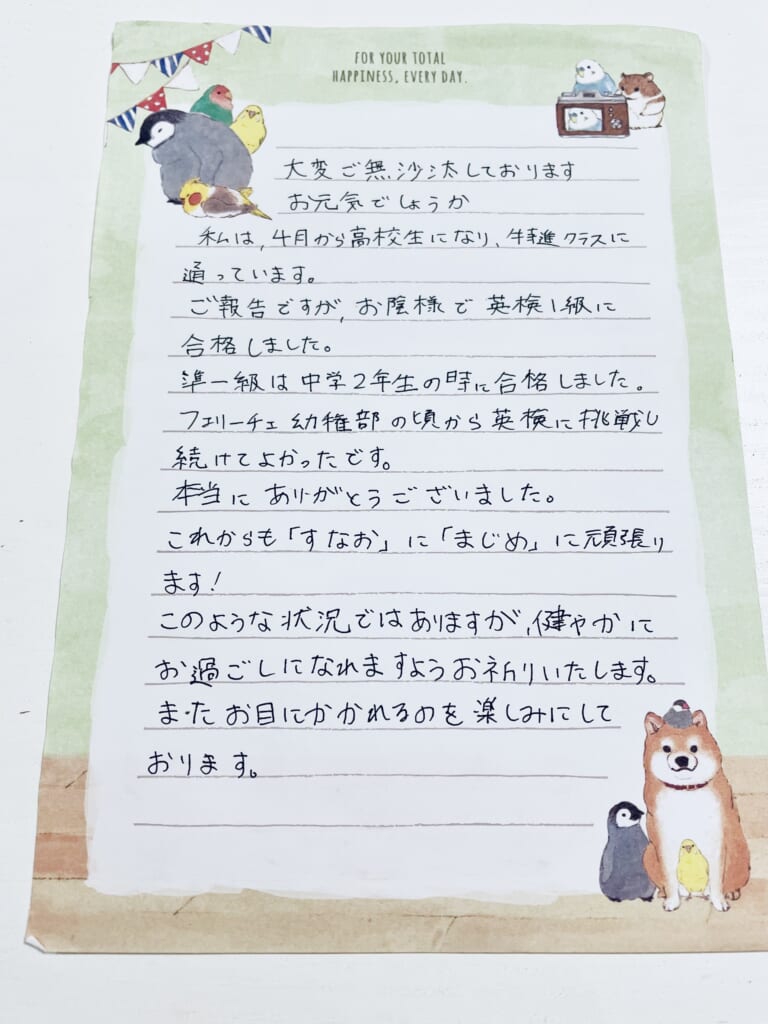 FOR YOUR TOTAL
HAPPINESS, EVERY DAY.
大変ご無沙汰しております
お元気でしょうか
私は、4月から高校生になり、特進クラスに
通っています。
ご報告ですが、お陰様で英検1級に
合格しました。
準一級は中学2年生の時に合格しました。
フェリーチェ幼稚部の頃から英検に挑戦し
続けてよかったです。
本当にありがとうございました。
これからも「すなお」に「まじめ」に頑張り
ます!
このような状況ではありますが、健やかに
お過ごしになれますようお祈りいたします。
またお目にかかれるのを楽しみにして
おります。